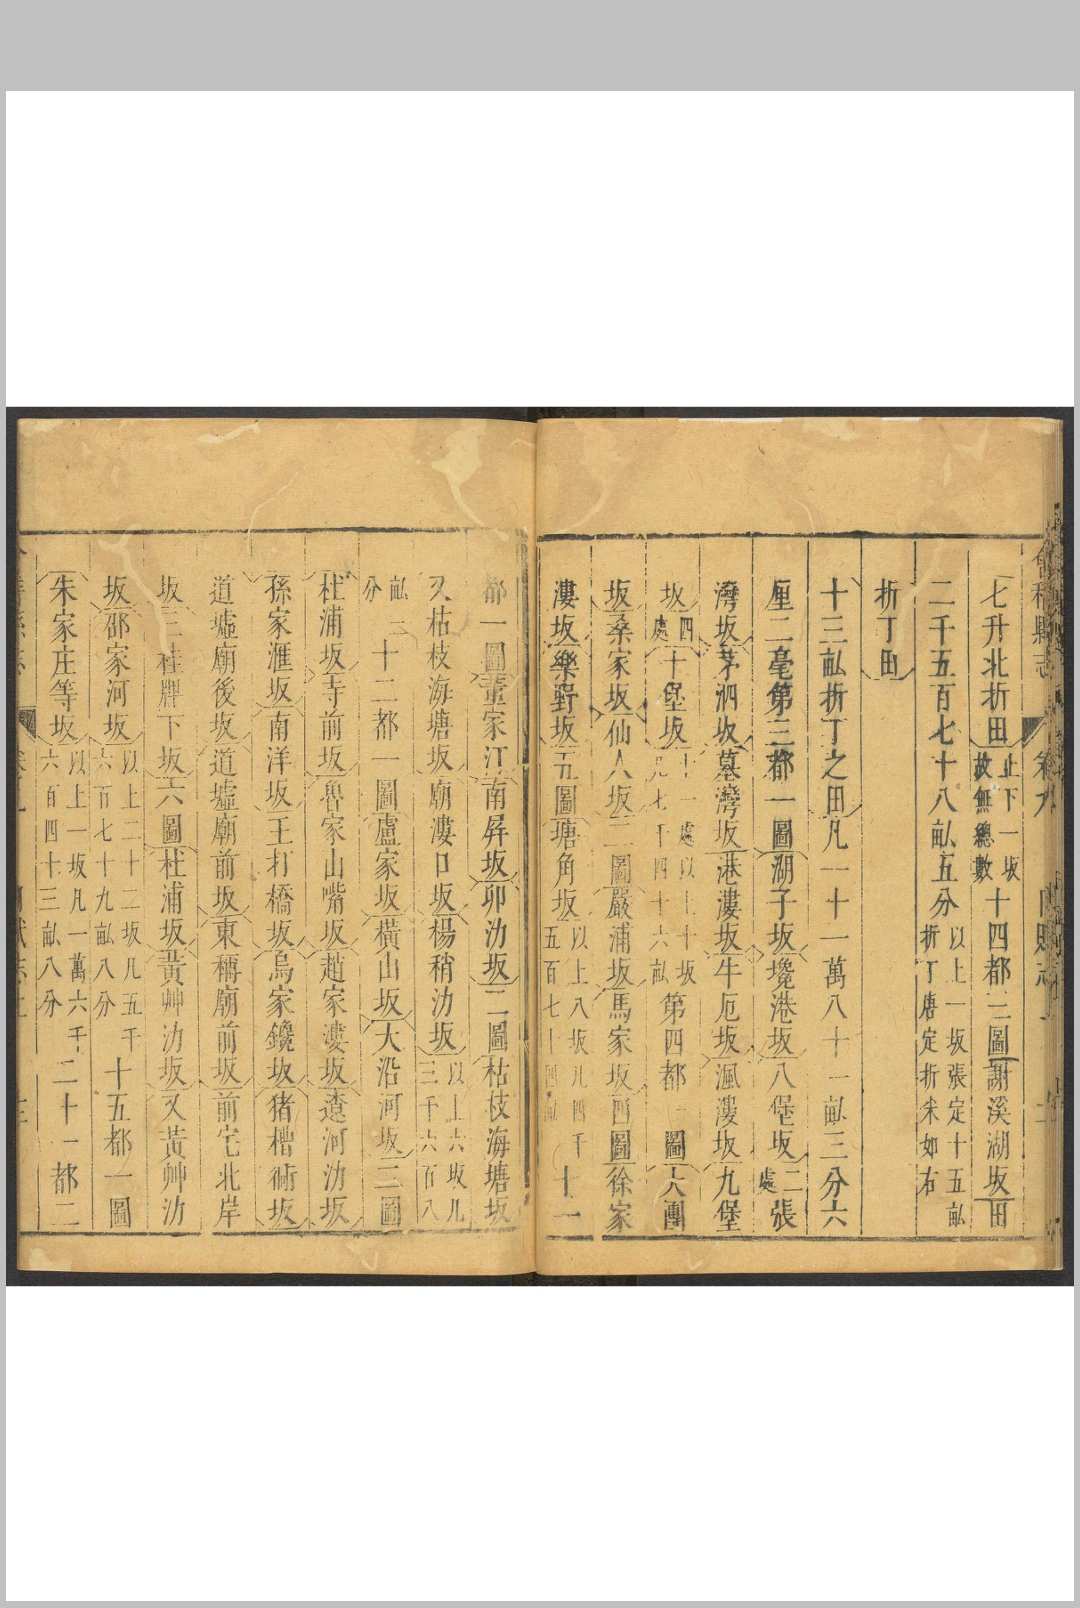 會稽縣志 卷九 田賦志上
七升北折田止下一坂故無總數十四都二圖謝溪湖坂田
二千五百七十八畝五分以上一坂張定十五畝折丁唐定折米如右
折丁田
十三畝折丁之田凡一十一萬八十一畝三分六
厘二毫第三都一圖湖子坂壪港坂八堡坂二處張
灣坂茅泗坂墓灣坂港漊坂牛厄坂渢漊坂九堡
坂四處十堡坂十一處以上十坂凡七千四十六畝第四都一圖大團
坂桑家坂仙人坂二圖嚴浦坂馬家坂四圖徐家
漊坂樂野坂五圖塘角坂以上八坂凡四千五百七十四畝十一
都一圖董家江南屛坂卯汸坂二圖枯枝海塘坂
又枯枝海塘坂廟漊口坂楊稍汸坂以上六坂凡三千六百八
畝二分十二都一圖盧家坂橫山坂大沿河坂三圖
杜浦坂寺前坂魯家山嘴坂趙家漊坂遶河汸坂
孫家滙坂南洋坂王打橋坂烏家鑱坂猪櫓衕坂
道墟廟後坂道墟廟前坂東稱廟前坂前宅北岸
坂三社牌下坂六圖杜浦坂黃艸汸坂又黃艸汸
坂邵家河坂以上二十二坂凡五千六百七十九畝八分十五都一圖
朱家庄等坂以上一坂凡一萬六千六百四十三畝八分二十一都二